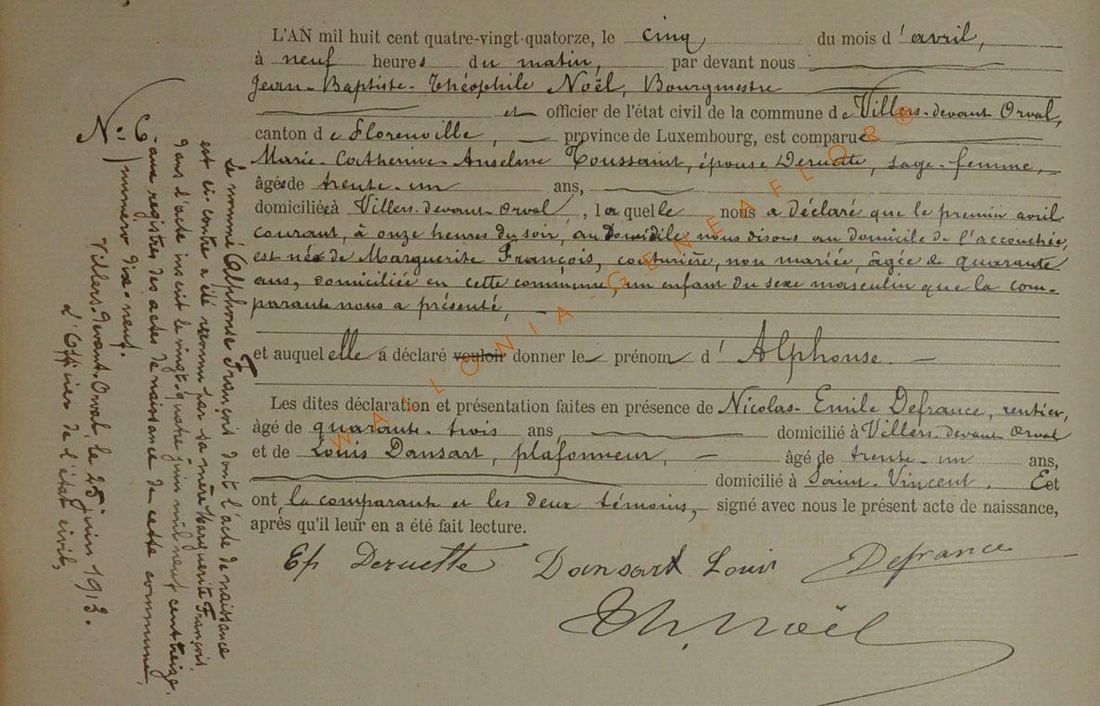 L'AN mil huit cent quatre-vingt-quatorze, le cinq du mois d'avril,
à neuf heures du matin, par devant nous
Jean-Baptiste-Théophile Noël, Bourgmestre
et officier de l'état civil de la commune de Villers-devant Orval,
canton de Florenville, province de Luxembourg, est comparue
Marie-Catherine-Anselme Toussaint, épouse Deruette, sage-femme,
âgée de trente-un ans,
domiciliée à Villers-devant-Orval, laquelle nous a déclaré que le premier avril
courant, à onze heures du soir, au Domidile nous disons au domicile de l'accouchée,
est né de Marguerite François, couturière, non mariée, âgée de quarante
ans, domiciliée en cette commune, un enfant du sexe masculin que la com-
parante nous a présenté,
et auquel elle a déclaré vouloir donner le prénom d'Alphonse
Les dites déclaration et présentation faites en présence de Nicolas-Emile Defrance, rentier,
âgé de quarante-trois ans, domicilié à Villers-devant Orval
et de Louis Dansart, plafonneur, âgé de trente-un ans,
domicilié à Saint-Vincent. Et
ont, la comparante et les deux témoins, signé avec nous le présent acte de naissance,
après qu'il leur en a été fait lecture.
Ep Deruette Dansart Louis Defrance
Th. Noël
N° 6
Le nommé Alphonse François dont l'acte de naissance
est ci-contre a été reconnu par sa mère Marguerite François
dans l'acte inscrit le vingt-quatre juin mil neuf cent treize
aux registres des actes de naissance de cette commune,
numéro dix-neuf.
Villers-devant-Orval, le 25 juin 1913.
L'Officier de l'état civil,
WALLONIA-GENEAFLOR®